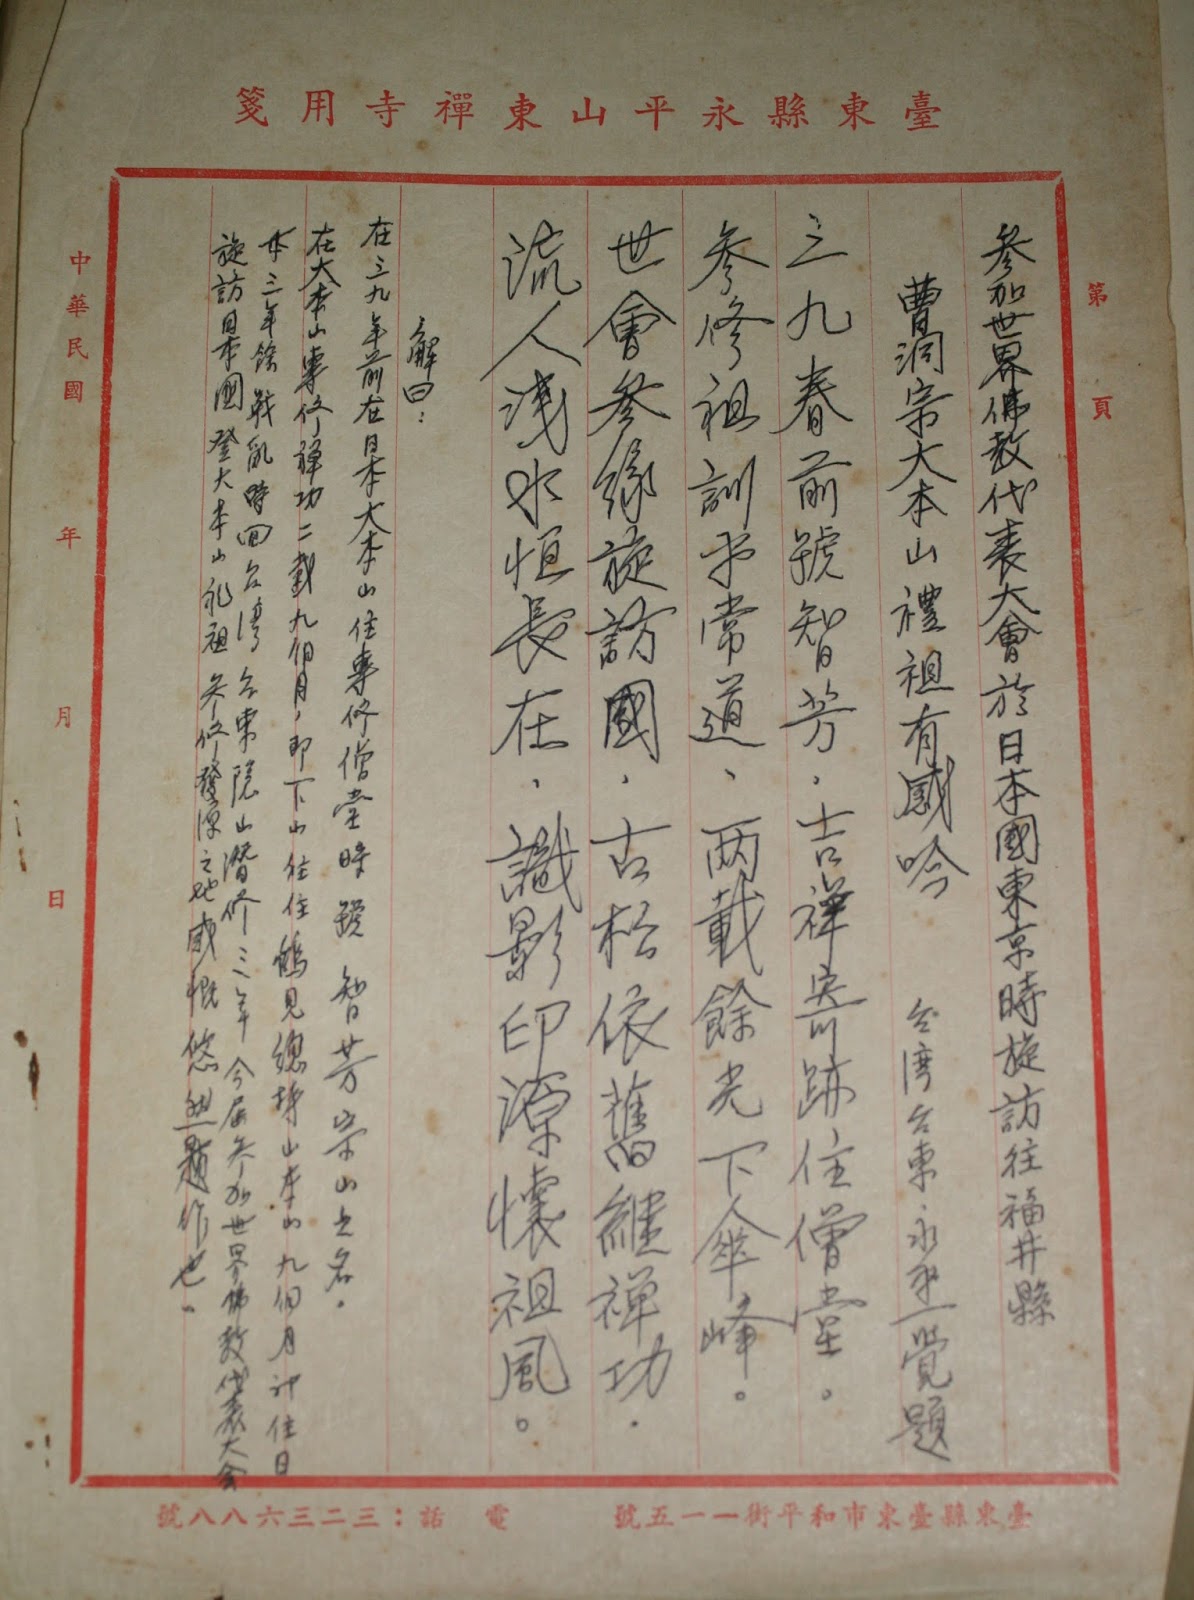 臺東縣永平山東禪寺用箋
第 頁
參加世界佛教代表大會於日本國東京時旋訪往福井縣
曹洞宗大本山禮祖有感吟 台湾台東永平一覺題
三九春前號智芳．吉祥寄跡住僧堂。
參修祖訓平常道、兩載餘光下傘峰。
世會參緣旋訪國．古松依舊繼禪功．
流人浅水恒長在．識影印潭懷祖風。
解曰：
在三九年前在日本大本山住專修僧堂時 號 智芳宗山之名．
在大本山專修禅功二載九個月，即下山往住鶴見總持山本山九個月計住日
本三年餘戰亂時回台湾台東隱山潛修三年 今届參加世界佛教代表大会
旋訪日本國登大本山礼祖 參修發源之地感慨悠然題作也。
中華民國 年 月 日
臺東縣臺東市和平街一一五號 電話：三二三六八八號